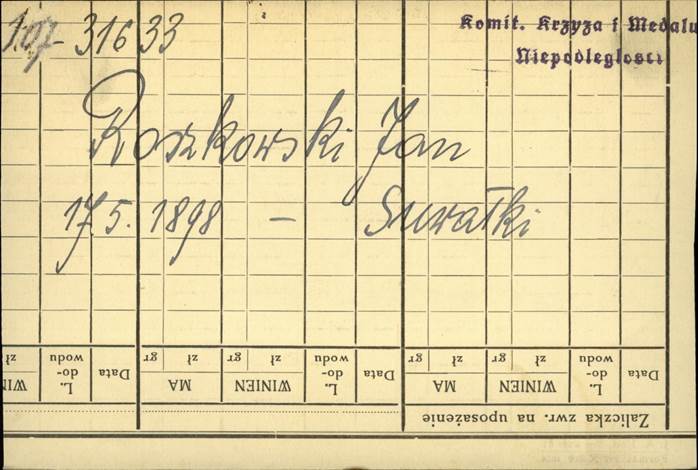 107-31633
Komit. Krzyża i Medalu
Niepodległości
Roszkowski Jan
17.5.1898 - Suwałki
Zaliczka zwr. na uposażenie
Data | L. do- wodu | WINIEN zł gr | MA zł gr
Data | L. do- wodu | WINIEN zł gr | MA zł gr
Data | L. do- wodu | WIN zł